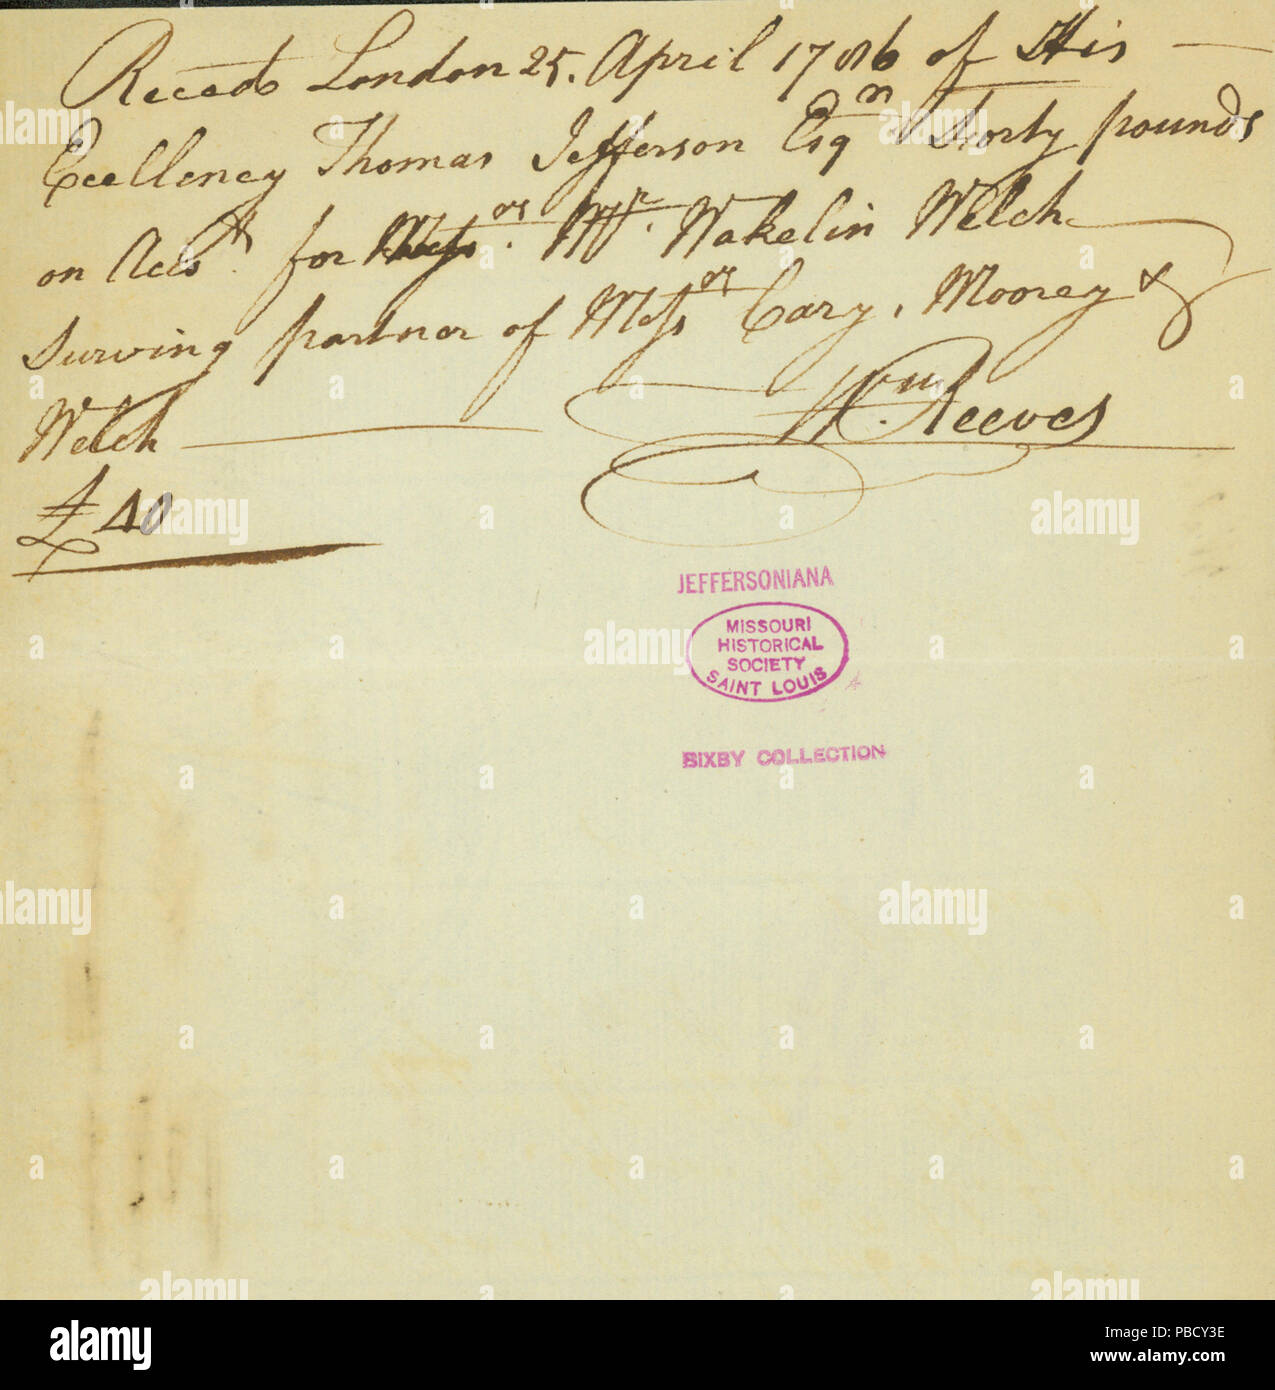 Reced London 25. April 1786 of His
Excellency Thomas Jefferson Esqr Forty pounds
on Acct. for Messrs. Mr. Wakelin Welch
Surving partner of Messrs Cary, Moorey &
Welch
Wm. Reeves
£40
JEFFERSONIANA
MISSOURI
HISTORICAL
SOCIETY
SAINT LOUIS
BIXBY COLLECTION
alamy
Image ID: PBCY3E
www.alamy.com